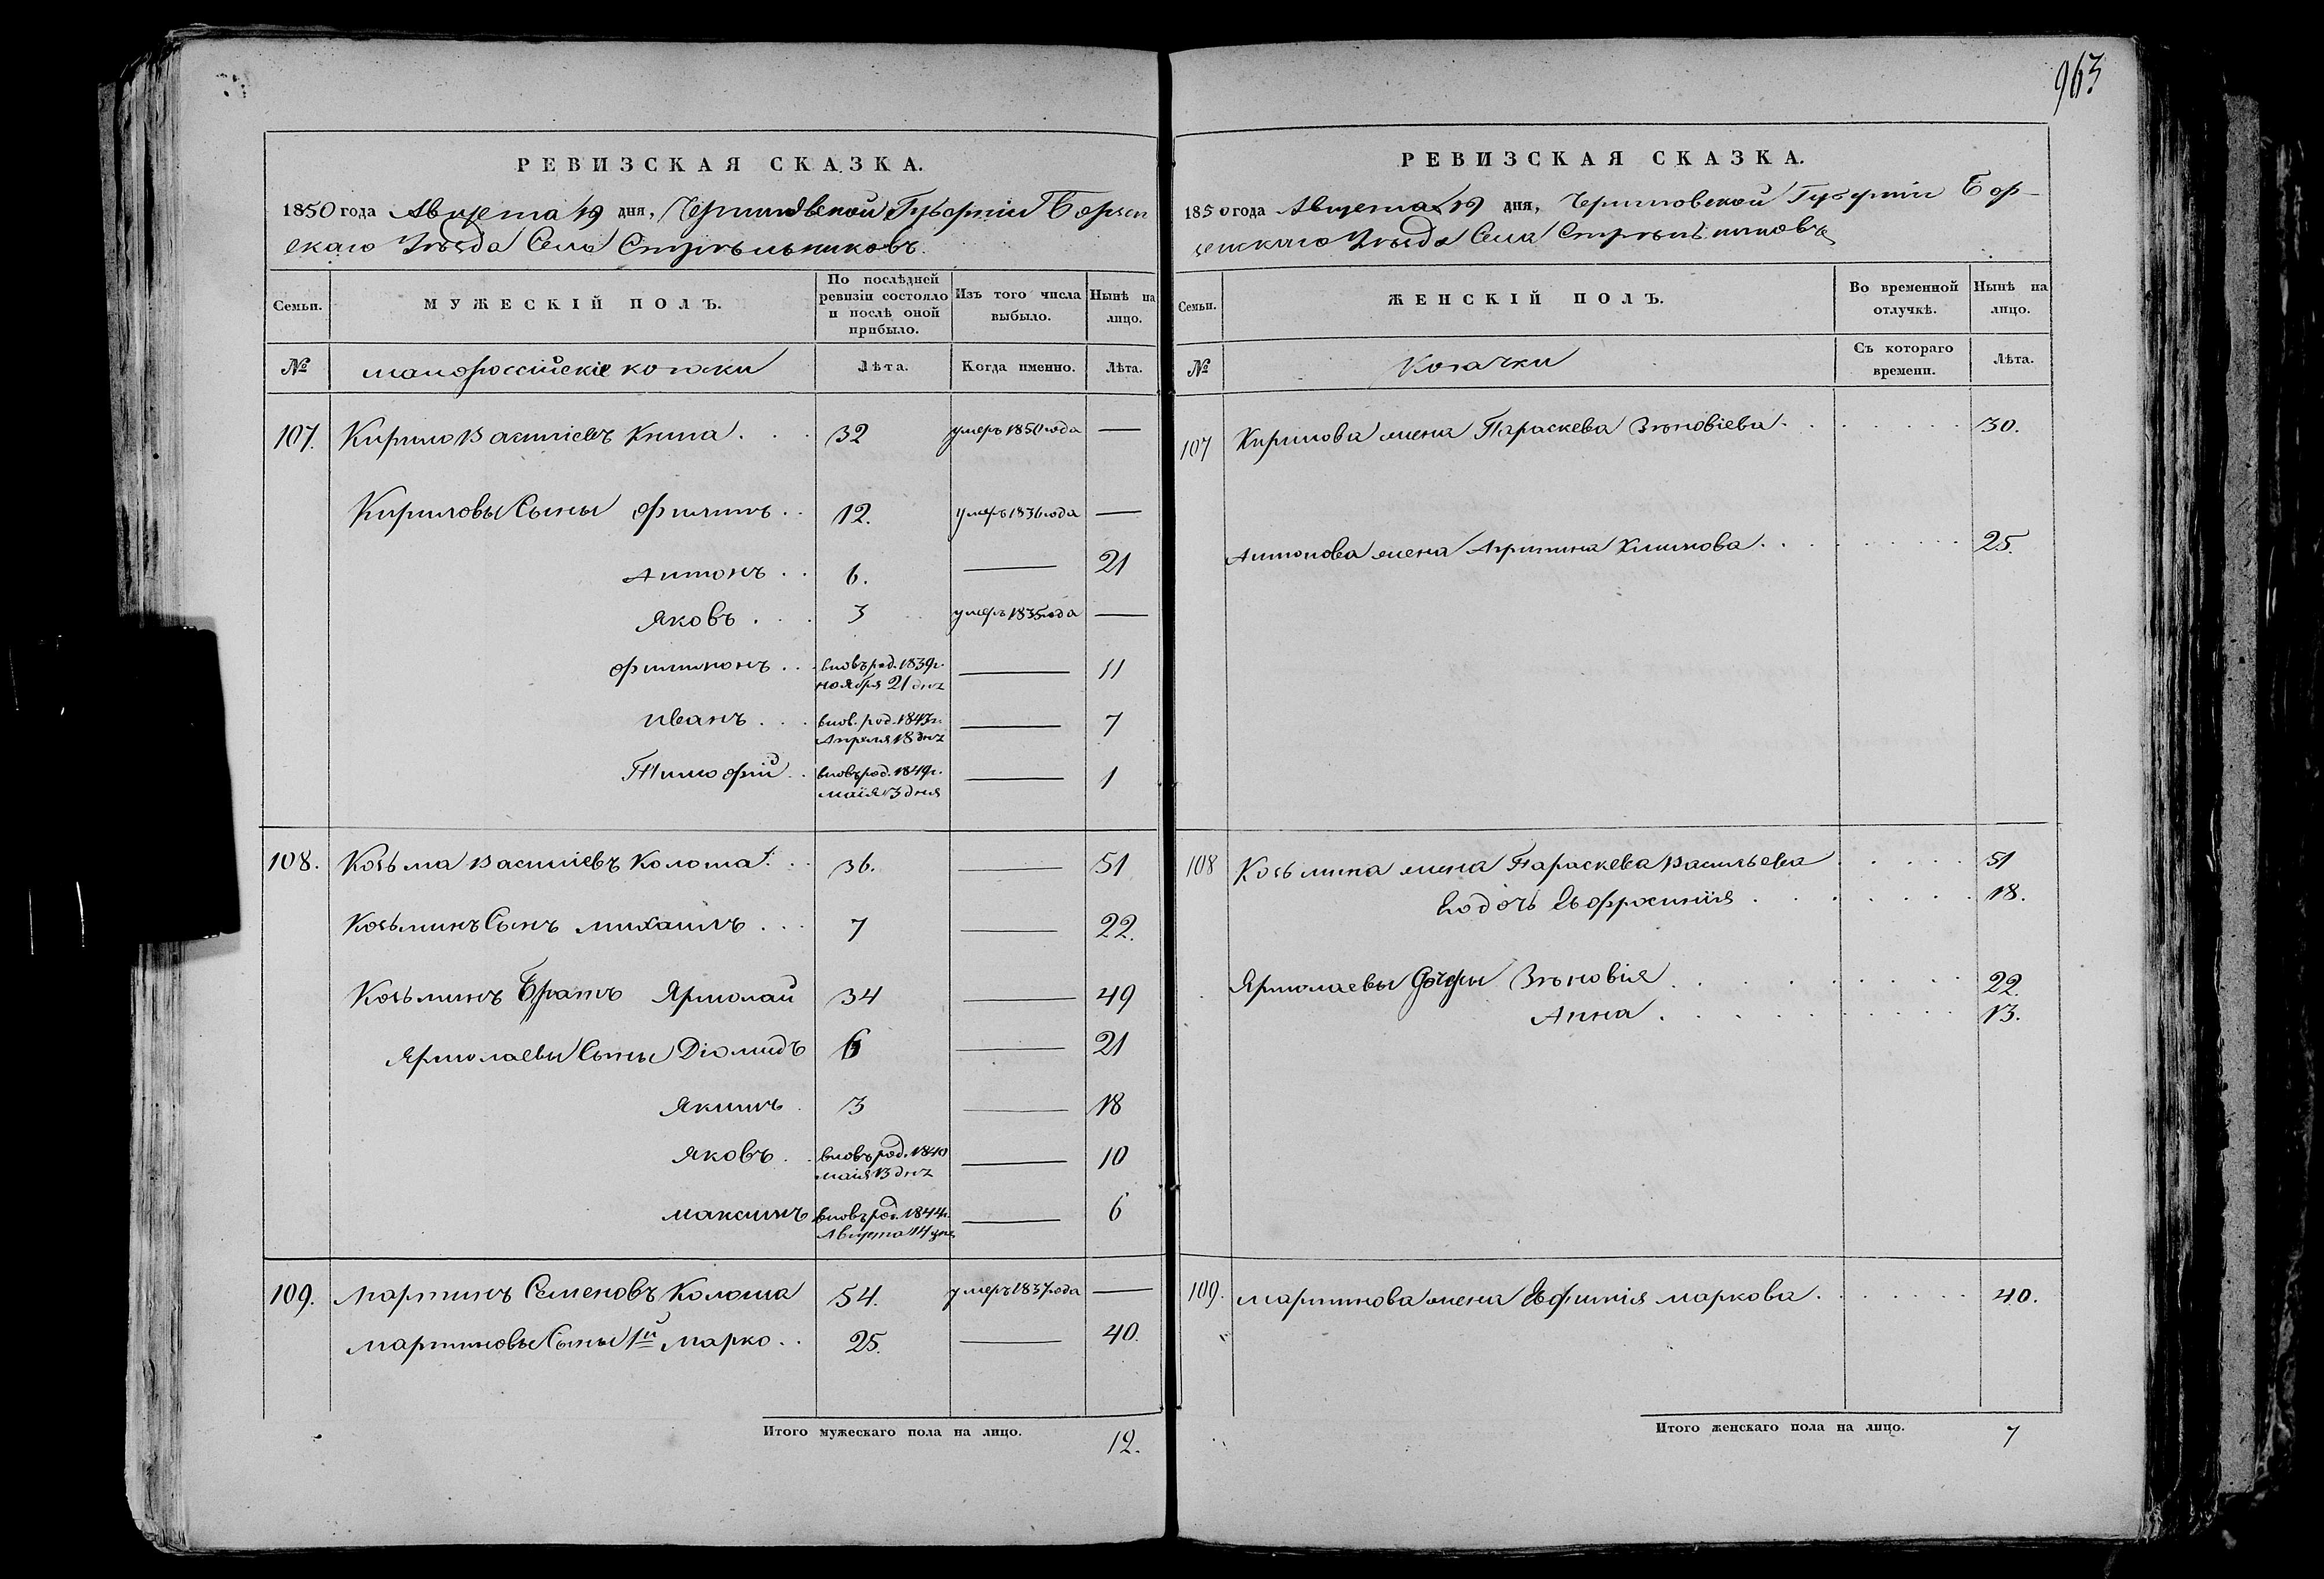 963
РЕВИЗСКАЯ СКАЗКА.
1850 года Августа 19 дня, Черниговской Губернии Борзен
скаго Уѣзда Села Стрѣльниковъ
Семьи.
МУЖЕСКІЙ ПОЛЪ.
По послѣдней ревизіи состояло и послѣ оной прибыло.
Изъ того числа выбыло.
Нынѣ на лицо.
№ малороссійскіе козаки Лѣта. Когда именно. Лѣта.
107. Кирило Василіевъ Книша 32 умеръ 1850 года —
Кириловы Сыны Филипъ 12. умеръ 1836 года —
Антонъ 6. — 21
Яковъ 3 умеръ 1835 года —
Филимонъ вновь род. 1839 г. ноября 21 дня — 11
Иванъ внов. род. 1843 г. Апреля 18 дня — 7
Тимофій вновь род. 1849 г. маія 3 дня — 1
108. Козьма Василіевъ Колоша 36. — 51
Козьминъ Сынъ михаилъ 7 — 22.
Козьминъ Братъ Ярмолай 34 — 49
Ярмолаевы Сыны Діомидъ 6 — 21
Якимъ 3 — 18
Яковъ вновь род. 1840 маія 13 дня — 10
максимъ вновь род. 1844 г. Августа 14 дня — 6
109. мартинъ Семеновъ Колоша 54. умеръ 1837 года —
мартиновы Сыны 1й марко 25. — 40.
Итого мужескаго пола на лицо. 12.
РЕВИЗСКАЯ СКАЗКА.
1850 года Августа 19 дня, Черниговской Губерніи Бор-
зенскаго Уѣзда Села Стрѣльниковъ
Семьи.
ЖЕНСКІЙ ПОЛЪ.
Во временной отлучкѣ.
Нынѣ на лицо.
№ Козачки Съ котораго времени. Лѣта.
107 Кирилова жена Параскева Зѣновіева 30.
Антонова жена Агрипина Климова 25.
108 Козьмина жена Параскева Васильева 51
Ея дочь Евфросинія 18.
Ярмолаевы Дочери Зѣновія 22.
Анна 13.
109. мартинова жена Евфимія маркова 40.
Итого женскаго пола на лицо. 7